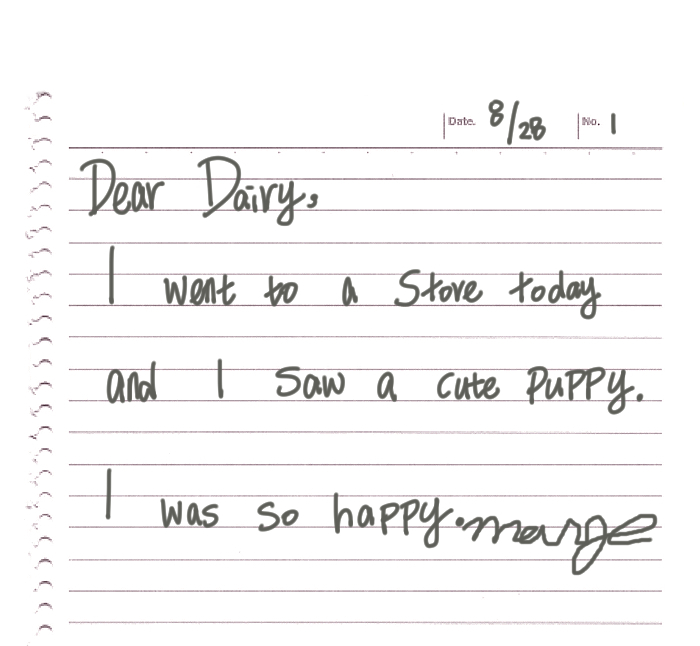 Date. 8/28 No. 1
Dear Dairy,
I went to a Store today
and I saw a cute puppy.
I was so happy. marge